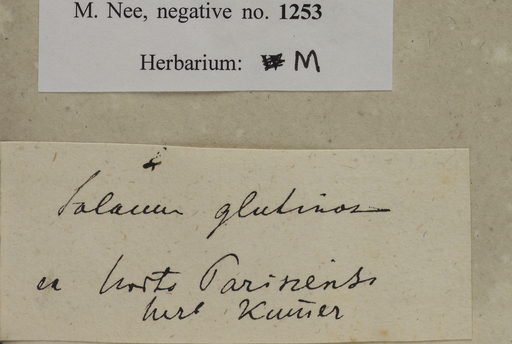 M. Nee, negative no. 1253
Herbarium: M
Solanum glutinos
ex horto Parisiensi
herb Kumer